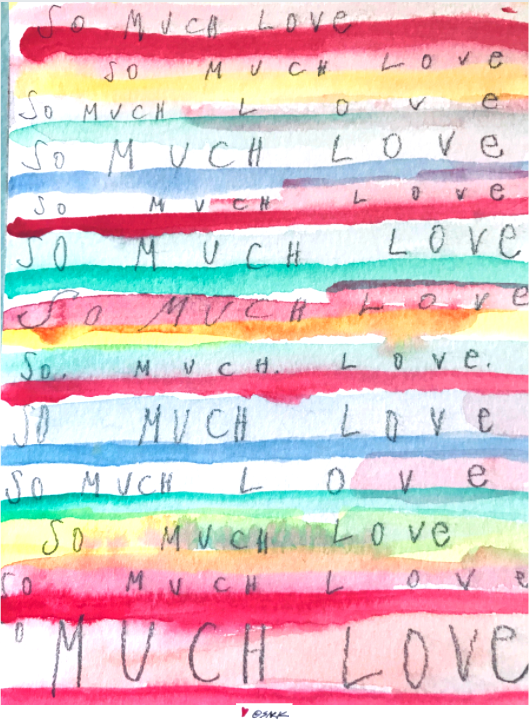 SO MUCH LOVe
SO MUCH LOVe
SO MUCH LOVe
SO MUCH LOVe
SO MUCH LOVe
SO MUCH LOVe
SO MUCH LOVe
SO. MUCH. LOVe.
SO MUCH LOVe
SO MUCH LOVe
SO MUCH LOVe
SO MUCH LOVe
O MUCH LOVe